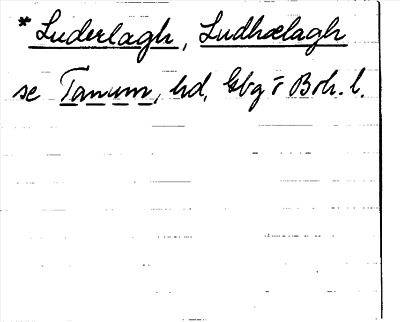 *Luderlagh, Ludhælagh
se Tanum, hd, Gbg o Boh. l.